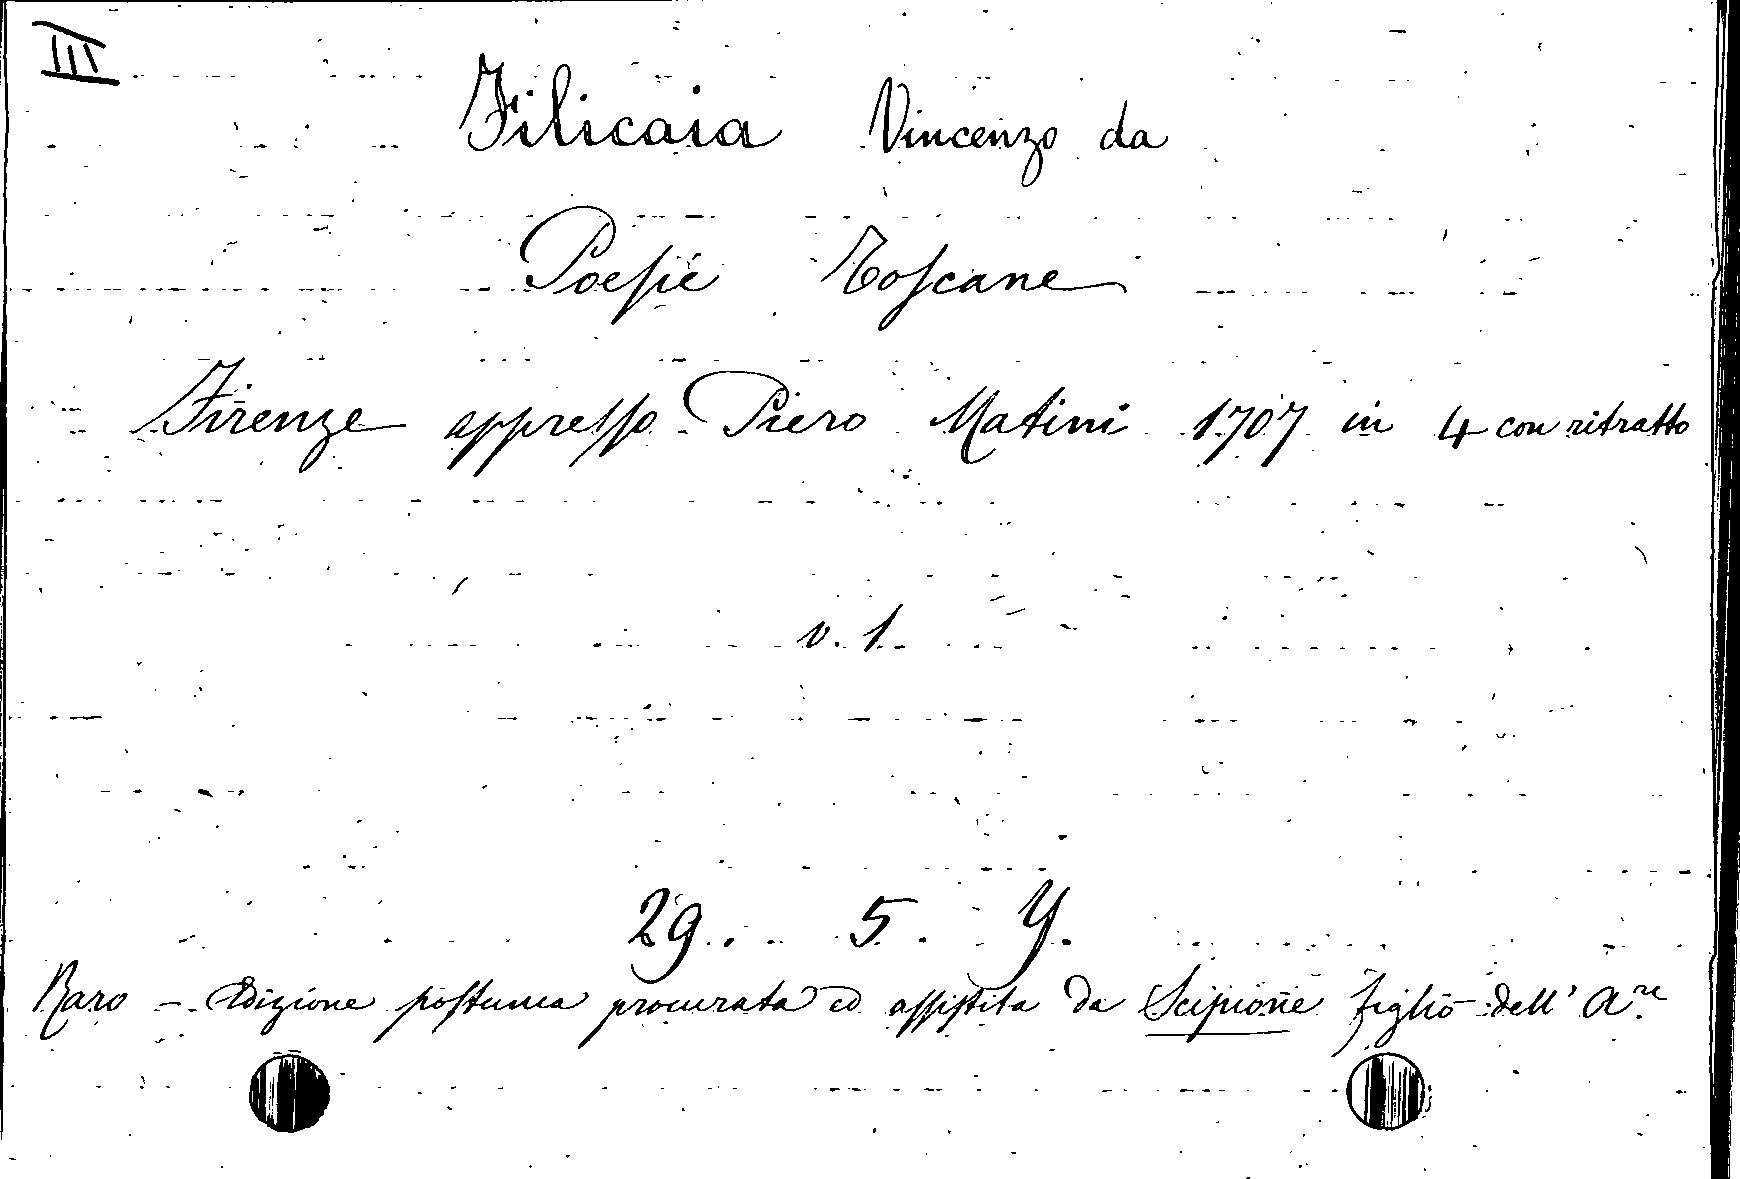 III
Filicaia Vincenzo da
Poesie Toscane
Firenze appresso Piero Matini 1707 in 4 con ritratto
v. 1.
29. 5. Y.
Raro - Edizione postuma procurata ed assistita da Scipione figlio dell' A.re